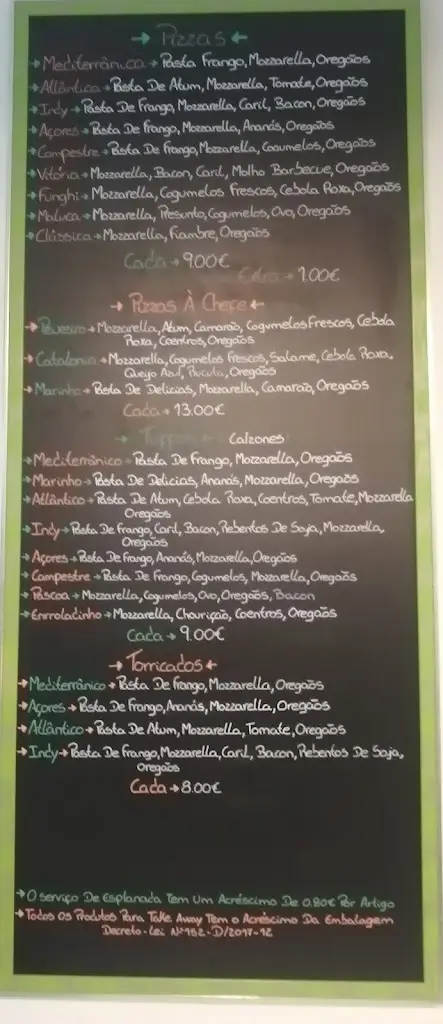 → Pizzas ←
→ Mediterrânica → Pasta Frango, Mozzarella, Oregãos
→ Atlântica → Pasta De Atum, Mozzarella, Tomate, Oregãos
→ Indy → Pasta De Frango, Mozzarella, Caril, Bacon, Oregãos
→ Açores → Pasta De Frango, Mozzarella, Ananás, Oregãos
→ Campestre → Pasta De Frango, Mozzarella, Cogumelos, Oregãos
→ Vitória → Mozzarella, Bacon, Caril, Molho Barbecue, Oregãos
→ Funghi → Mozzarella, Cogumelos Frescos, Cebola Roxa, Oregãos
→ Maluca → Mozzarella, Presunto, Cogumelos, Ovo, Oregãos
→ Clássica → Mozzarella, Fiambre, Oregãos
Cada → 9.00€
Extra → 1.00€
→ Pizzas À Chefe ←
→ Mozzarella, Atum, Camarão, Cogumelos Frescos, Cebola
Roxa, Coentros, Oregãos
→ Catalonia → Mozzarella, Cogumelos Frescos, Salame, Cebola Roxa,
Queijo Azul, Rucula, Oregãos
→ Marinha → Pasta De Delicias, Mozzarella, Camarão, Oregãos
Cada → 13.00€
→ Calzones
→ Mediterrânico → Pasta De Frango, Mozzarella, Oregãos
→ Marinho → Pasta De Delicias, Ananás, Mozzarella, Oregãos
→ Atlântico → Pasta De Atum, Cebola Roxa, Coentros, Tomate, Mozzarella
Oregãos
→ Indy → Pasta De Frango, Caril, Bacon, Rebentos De Soja, Mozzarella,
Oregãos
→ Açores → Pasta De Frango, Ananás, Mozzarella, Oregãos
→ Campestre → Pasta De Frango, Cogumelos, Mozzarella, Oregãos
→ Páscoa → Mozzarella, Cogumelos, Ovo, Oregãos, Bacon
→ Enrroladinho → Mozzarella, Chourição, Coentros, Oregãos
Cada → 9.00€
→ Torricados ←
→ Mediterrânico → Pasta De Frango, Mozzarella, Oregãos
→ Açores → Pasta De Frango, Ananás, Mozzarella, Oregãos
→ Atlântico → Pasta De Atum, Mozzarella, Tomate, Oregãos
→ Indy → Pasta De Frango, Mozzarella, Caril, Bacon, Rebentos De Soja,
Oregãos
Cada → 8.00€
→ O Serviço De Esplanada Tem Um Acréscimo De 0.80€ Por Artigo
→ Todos Os Produtos Para Take Away Tem o Acréscimo Da Embalagem
Decreto-Lei Nº152-D/2017-12